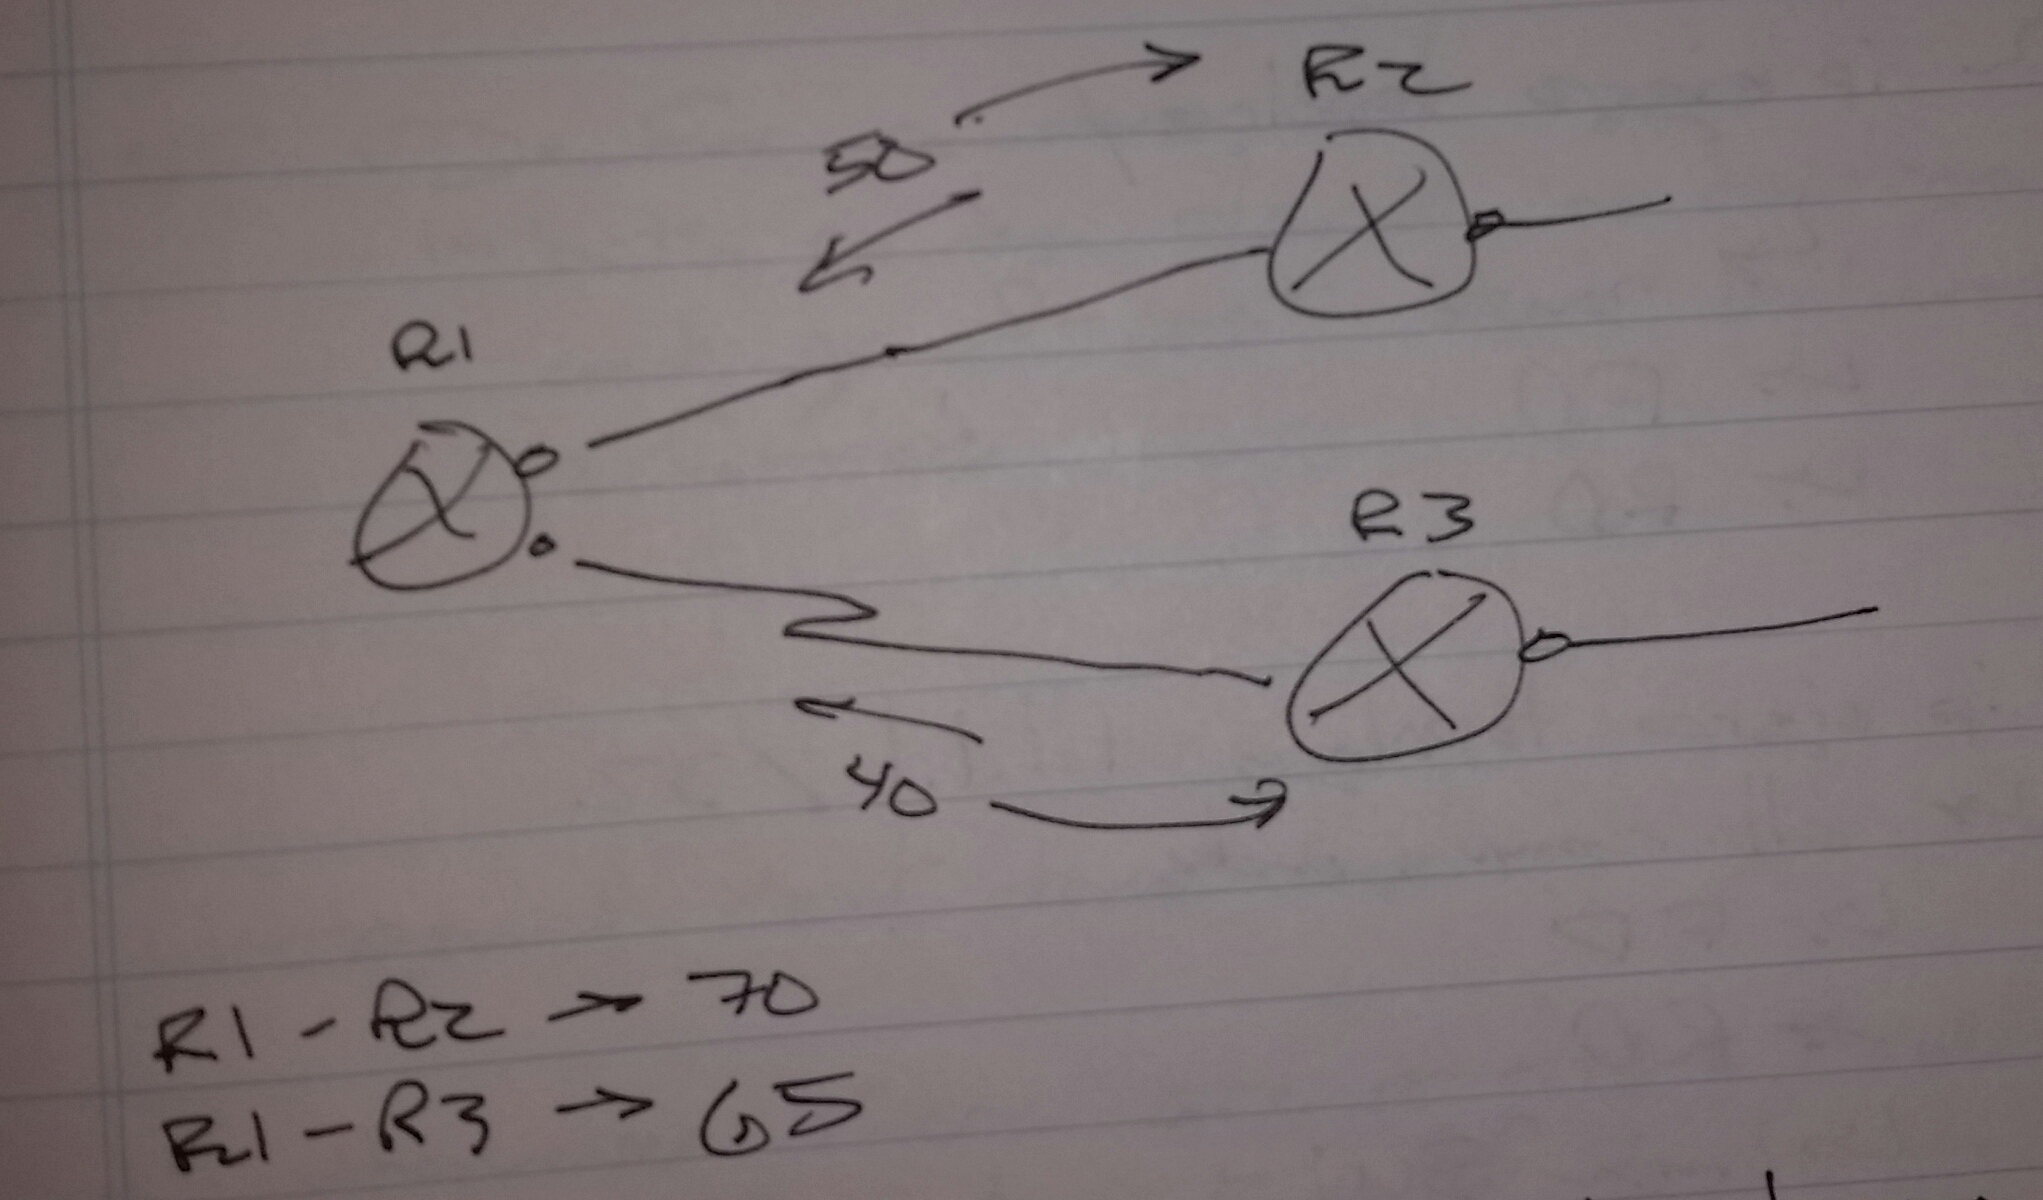 R2
50
R1
R3
40
R1 - R2 → 70
R1 - R3 → 65